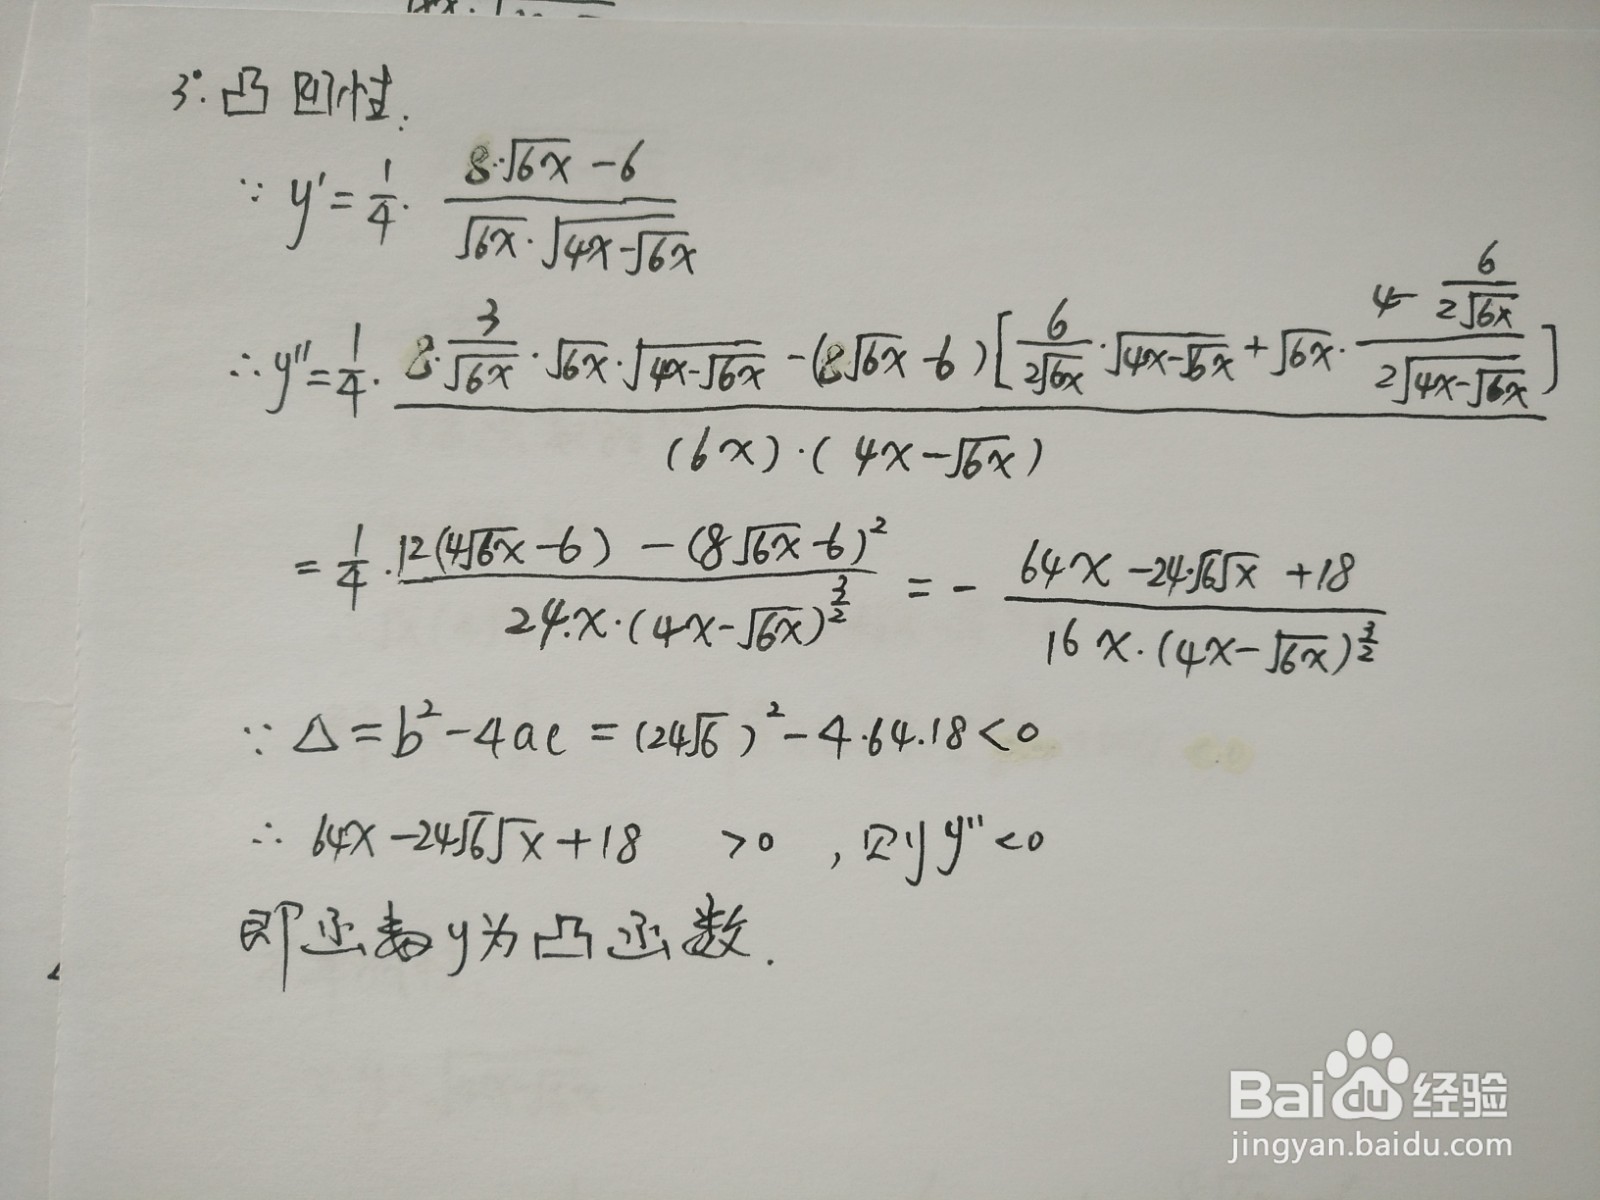 3°.凸凹性:
∵ y'=1/4·(8·√6x-6)/(√6x·√(4x-√6x))
∴y''=1/4·(8·3/√6x·√6x·√(4x-√6x)-(8√6x-6)[6/(2√6x)·√(4x-√6x)+√6x·(4-6/(2√6x))/(2√(4x-√6x))])/((6x)·(4x-√6x))
=1/4·(12(4√6x-6)-(8√6x-6)²)/(24.x·(4x-√6x)^(3/2))=-(64x-24·√6√x+18)/(16x·(4x-√6x)^(3/2))
∵ △=b²-4ac=(24√6)²-4·64.18<0
∴ 64x-24√6√x+18 >0 ,则y''<0
即函数y为凸函数.
Baidu经验
jingyan.baidu.com